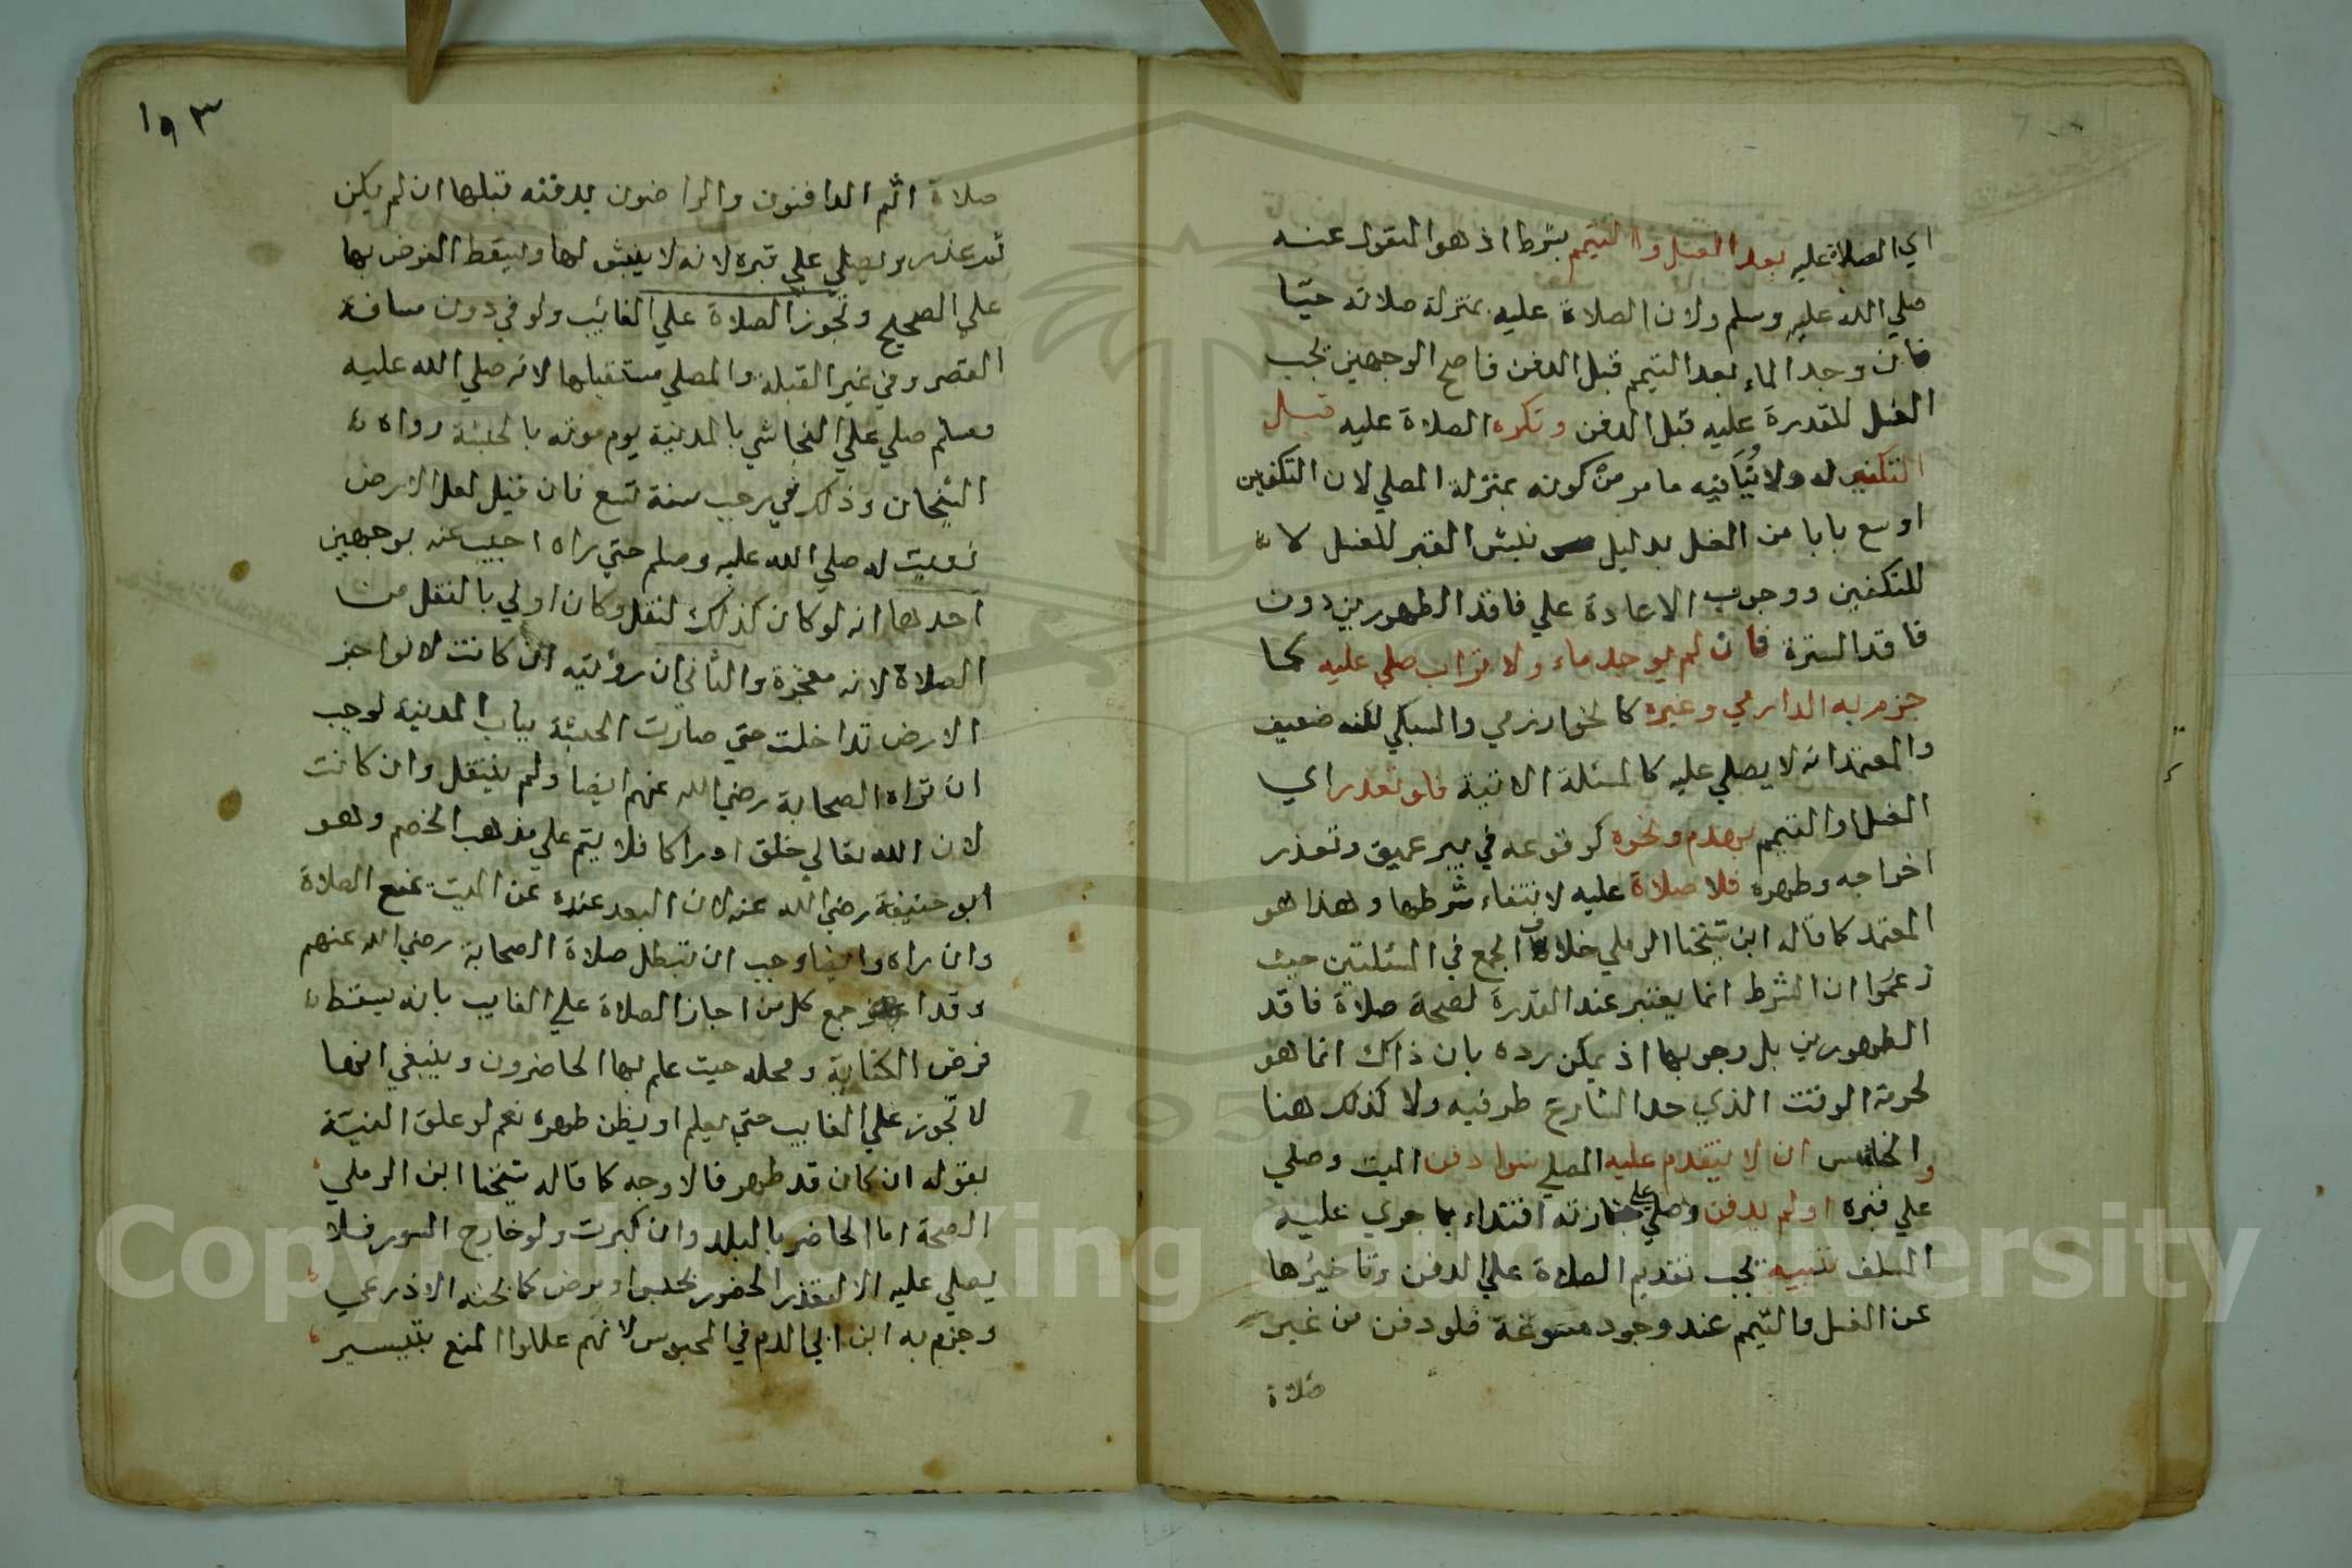 اي الصلاة عليه بعد الغسل والتيمم بشرط اذ هو المنقول عنه
صلي الله عليه وسلم ولان الصلاة عليه بمنزلة صلاته حيّا
فان وجد الماء بعد التيمم قبل الدفن فاصح الوجهين يجب
الغسل للقدرة عليه قبل الدفن وتكره الصلاة عليه قبل
التكفين له ولا ينافيه ما مر من كونه بمنزلة المصلي لان التكفين
اوسع بابا من الغسل بدليل نبش القبر للغسل لا
للتكفين ووجوب الاعادة علي فاقد الطهورين دون
فاقد السترة فان لم يوجد ماء ولا تراب صلي عليه كما
جزم به الدارمي وغيره كالخوارزمي والسبكي لكنه ضعيف
والمعتمد انه لا يصلي عليه كالمسئلة الاتية فلو تعذر اي
الغسل او التيمم بهدم ونحوه كوقوعه في بير عميق وتعذر
اخراجه وطهره فلا صلاة عليه لانتفاء شرطها وهذا هو
المعتمد كما قاله ابن شيخنا الرملي خلاف الجمع في المسئلتين حيث
زعموا ان الشرط انما يعتبر عند القدرة لصحة صلاة فاقد
الطهورين بل وجوبها اذ يمكن رده بان ذاك انما هو
لحرمة الوقت الذي حد الشارع طرفيه ولا كذلك هنا
والخامس ان لا يتقدم عليه المصلي سوا دفن الميت وصلي
علي قبره او لم يدفن وصلي علي جنازته اقتداء بما جري عليه
السلف تنبيه يجب تقديم الصلاة علي الدفن وتاخيرها
عن الغسل والتيمم عند وجود مسوغة فلو دفن من غير
صلاة
١٩٣
صلاة اثم الدافنون والراضون بدفنه قبلها ان لم يكن
ثم عذر ويصلي علي قبره لانه لا ينبش لها وليسقط الفرض بها
علي الصحيح وتجوز الصلاة علي الغائب ولو في دون مسافة
القصر وفي غير القبلة والمصلي مستقبلها لانه صلي الله عليه
وسلم صلي علي النجاشي بالمدينة يوم موته بالحبشة رواه
الشيخان وذلك في رجب سنة تسع فان قيل لعل الارض
زويت له صلي الله عليه وسلم حتي راه اجيب عنه بوجهين
احدها انه لو كان كذلك لنقل وكان اولي بالنقل من
الصلاة لانه معجزة والثاني ان رؤيته ان كانت لان اجز
الارض تداخلت حتي صارت الحبشة بباب المدينة لوجب
ان تراه الصحابة رضي الله عنهم ايضا ولم ينقل وان كانت
لان الله تعالي خلق ادراكا فلا يتم علي مذهب الخصم وهو
ابو حنيفة رضي الله عنه لان البعد عنده عن الميت يمنع الصلاة
وان راه وايضا وجب ان تبطل صلاة الصحابة رضي الله عنهم
وقد اجمع كل من اجاز الصلاة علي الغايب بانه يسقط
فرض الكفاية ومحله حيث علم بها الحاضرون وينبغي انها
لا تجوز علي الغايب حتي يعلم او يظن طهره نعم لو علق النيّة
بقوله ان كان قد طهر فالاوجه كما قاله شيخنا ابن الرملي
الصحة اما الحاضر بالبلد وان كبرت ولو خارج السور فلا
يصلي عليه الا لتعذر الحضور لحبس او مرض كما بحثه الاذرعي
وجزم به ابن ابي الدم في المحبوس لانهم عللوا المنع بتيسير
Copyright © King Saud University
195